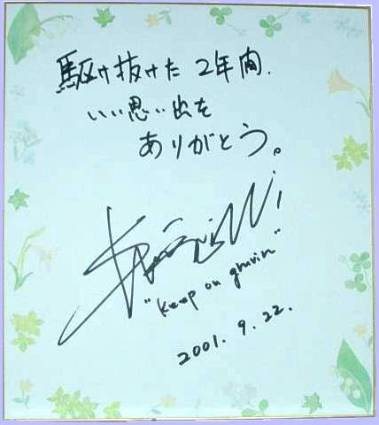 駆け抜けた 2年間.
いい思い出を
ありがとう。
"Keep on gruvin"
2001. 9. 22.